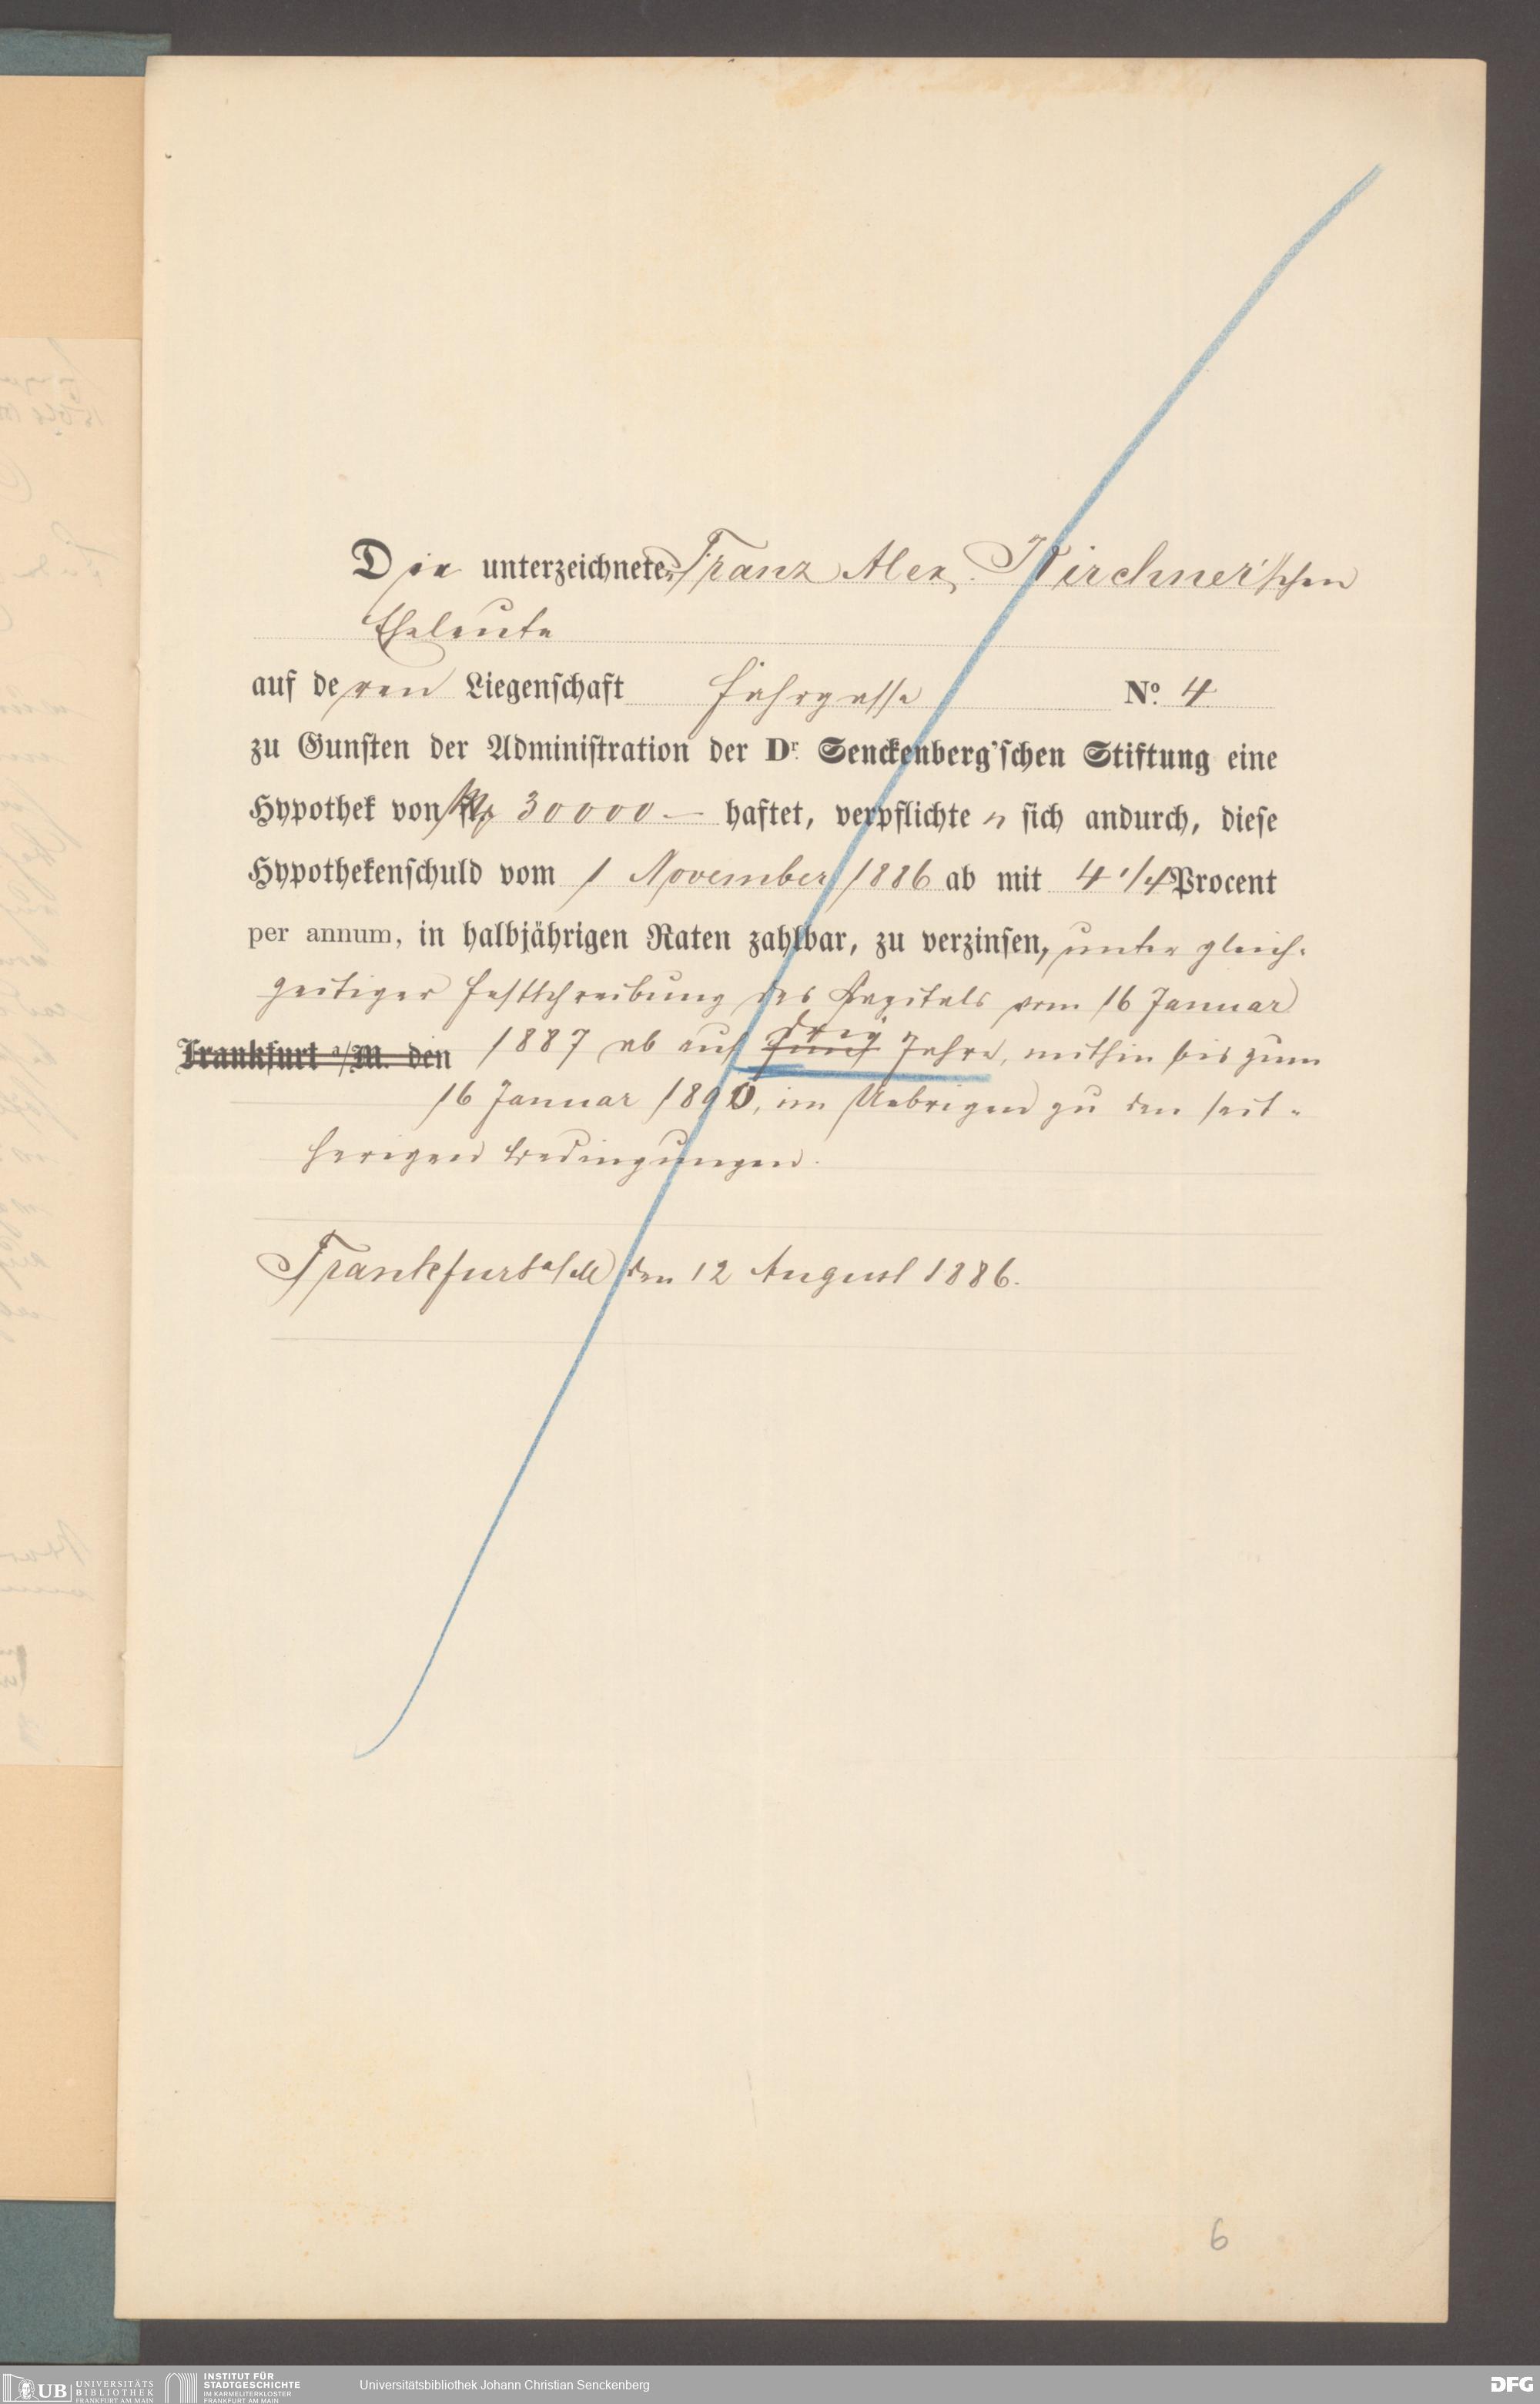 Die unterzeichneten Franz Alex. Kirchner'schen
Eheleute
auf deren Liegenschaft Fahrgasse No. 4
zu Gunsten der Administration der Dr. Senckenberg'schen Stiftung eine
Hypothek von M 30000 — haftet, verpflichten sich andurch, diese
Hypothekenschuld vom 1 November 1886 ab mit 4 1/4 Procent
per annum, in halbjährigen Raten zahlbar, zu verzinsen, unter gleich-
zeitiger Festschreibung des Kapitals vom 16 Januar
drey
Frankfurt a/M. den 1887 ab auf fünf Jahre, mithin bis zum
16 Januar 1890, im Uebrigen zu den seit-
herigen Bedingungen.
Frankfurt a/M den 12 August 1886.
6
UB UNIVERSITÄTS
BIBLIOTHEK
FRANKFURT AM MAIN
INSTITUT FÜR
STADTGESCHICHTE
IM KARMELITERKLOSTER
FRANKFURT AM MAIN
Universitätsbibliothek Johann Christian Senckenberg
DFG